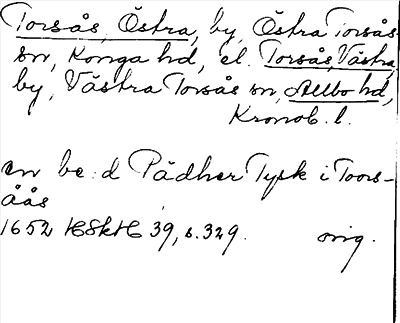 Torsås, Östra, by, Östra Torsås
sn, Konga hd, el. Torsås, Västra,
by, Västra Torsås sn, Allbo hd,
Kronob. l.
en be:d Pädher Tysk i Toors-
åås
1652 HSkH 39, s. 329. orig.